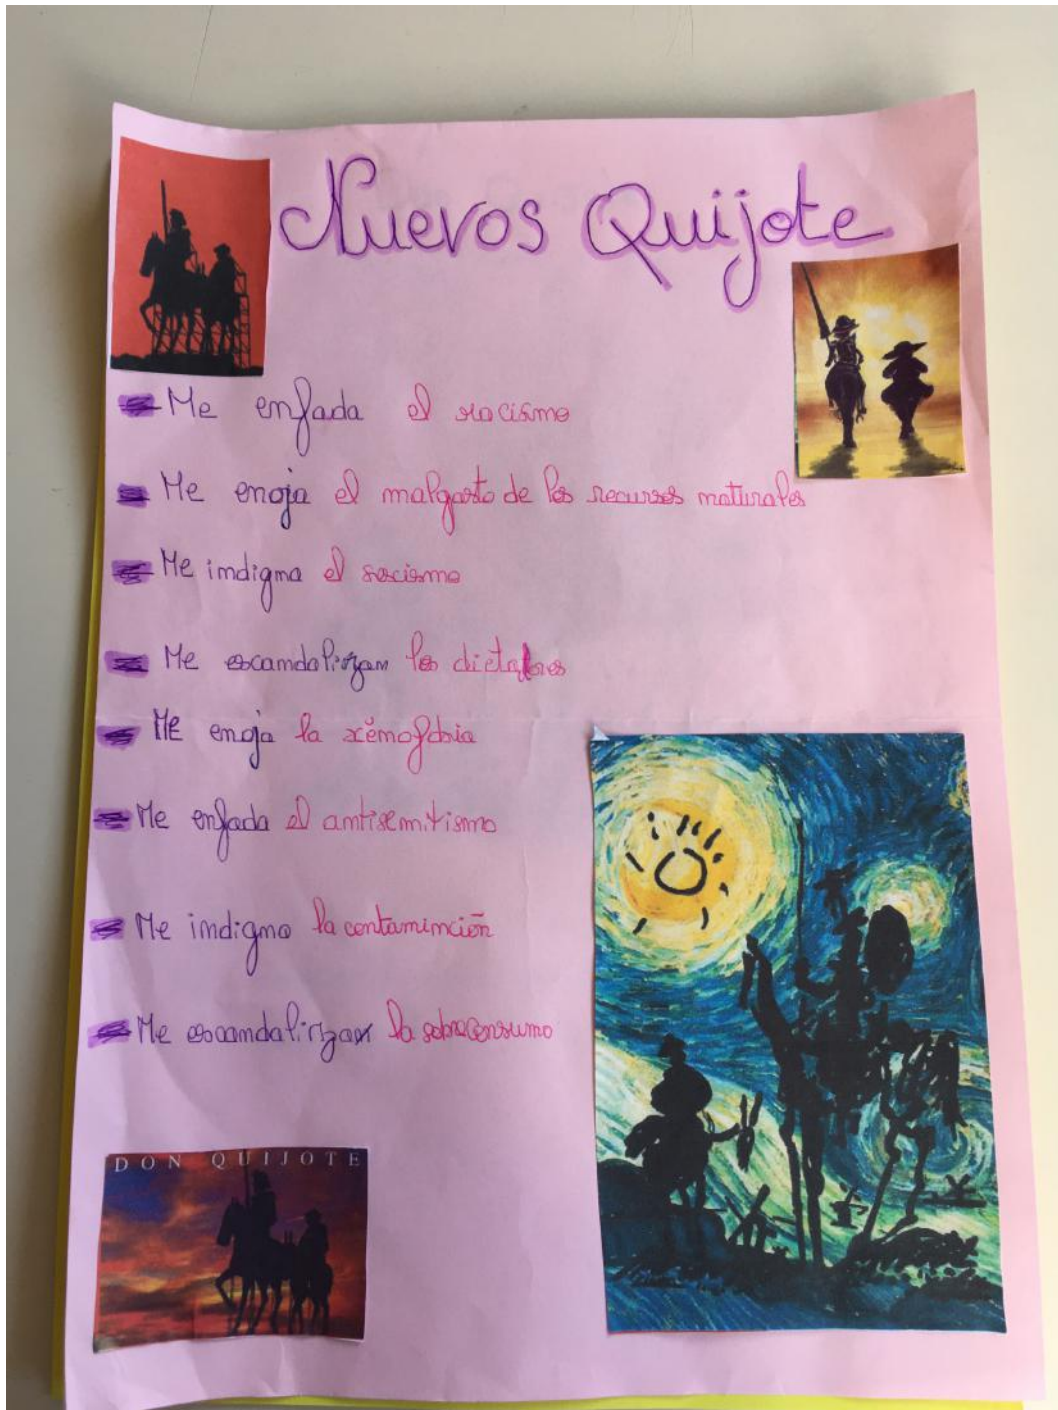 Nuevos Quijote
Me enfada el racismo
Me enoja el malgasto de los recursos naturales
Me indigna el sexismo
Me escandalizan los dictadores
ME enoja la xénofobia
Me enfada el antisemitismo
Me indigna la contaminción
Me escandalizan la sobreconsumo
DON QUIJOTE